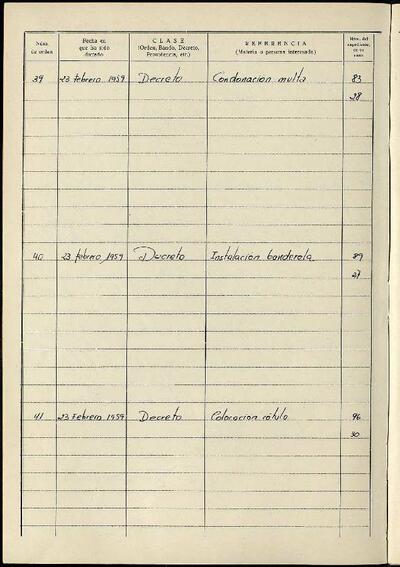 Núm. de orden
Fecha en que ha sido dictado
CLASE (Orden, Bando, Decreto, Providencia, etc.)
REFERENCIA (Materia o persona interesada)
Núm. del expediente, en su caso
39 23 febrero 1959 Decreto Condonacion multa 83
28
40 23 febrero 1959 Decreto Instalación banderola 89
27
41 23 Febrero 1959 Decreto Colocación rótulo 96
30